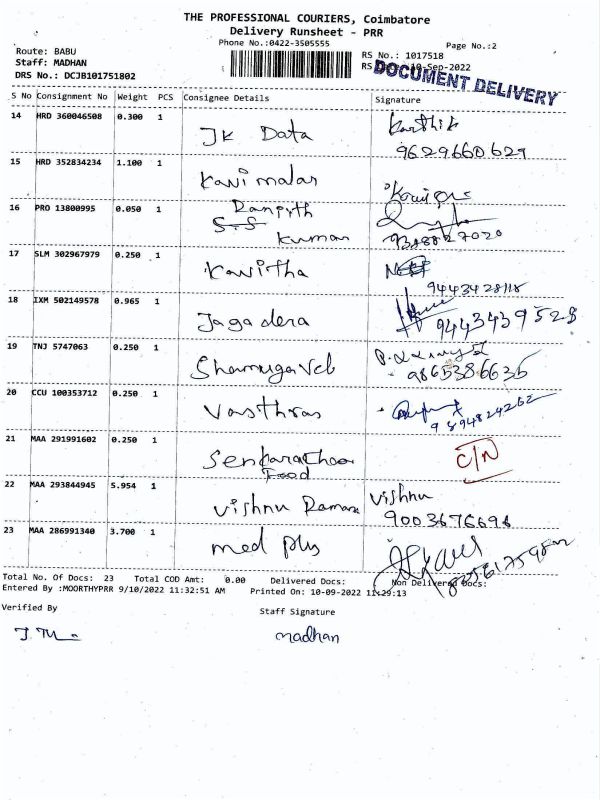 THE PROFESSIONAL COURIERS, Coimbatore
Delivery Runsheet - PRR
Phone No.:0422-3505555
Page No.:2
Route: BABU
Staff: MADHAN
DRS No.: DCJB101751802
RS No.: 1017518
RS 10-Sep-2022
DOCUMENT DELIVERY
S No Consignment No Weight PCS Consignee Details Signature
14 HRD 360046508 0.300 1 JK Data Karthik
9629660629
15 HRD 352834234 1.100 1 Kavi malar
16 PRO 13800995 0.050 1 Ranjith
S.S Kumar
17 SLM 302967979 0.250 1 Kavitha
9443428118
18 IXM 502149578 0.965 1 Jagadera
9443439528
19 TNJ 5747063 0.250 1 Shamugavel
9865386635
20 CCU 100353712 0.250 1 Vasthras
9894824262
21 MAA 291991602 0.250 1 Senkarathaa C/N
Food
22 MAA 293844945 5.954 1 Vishnu Raman Vishnu
9003676694
23 MAA 286991340 3.700 1 med plus
Total No. Of Docs: 23 Total COD Amt: 0.00 Delivered Docs: Non Delivered Docs:
Entered By :MOORTHYPRR 9/10/2022 11:32:51 AM Printed On: 10-09-2022 11:29:13
Verified By Staff Signature
madhan